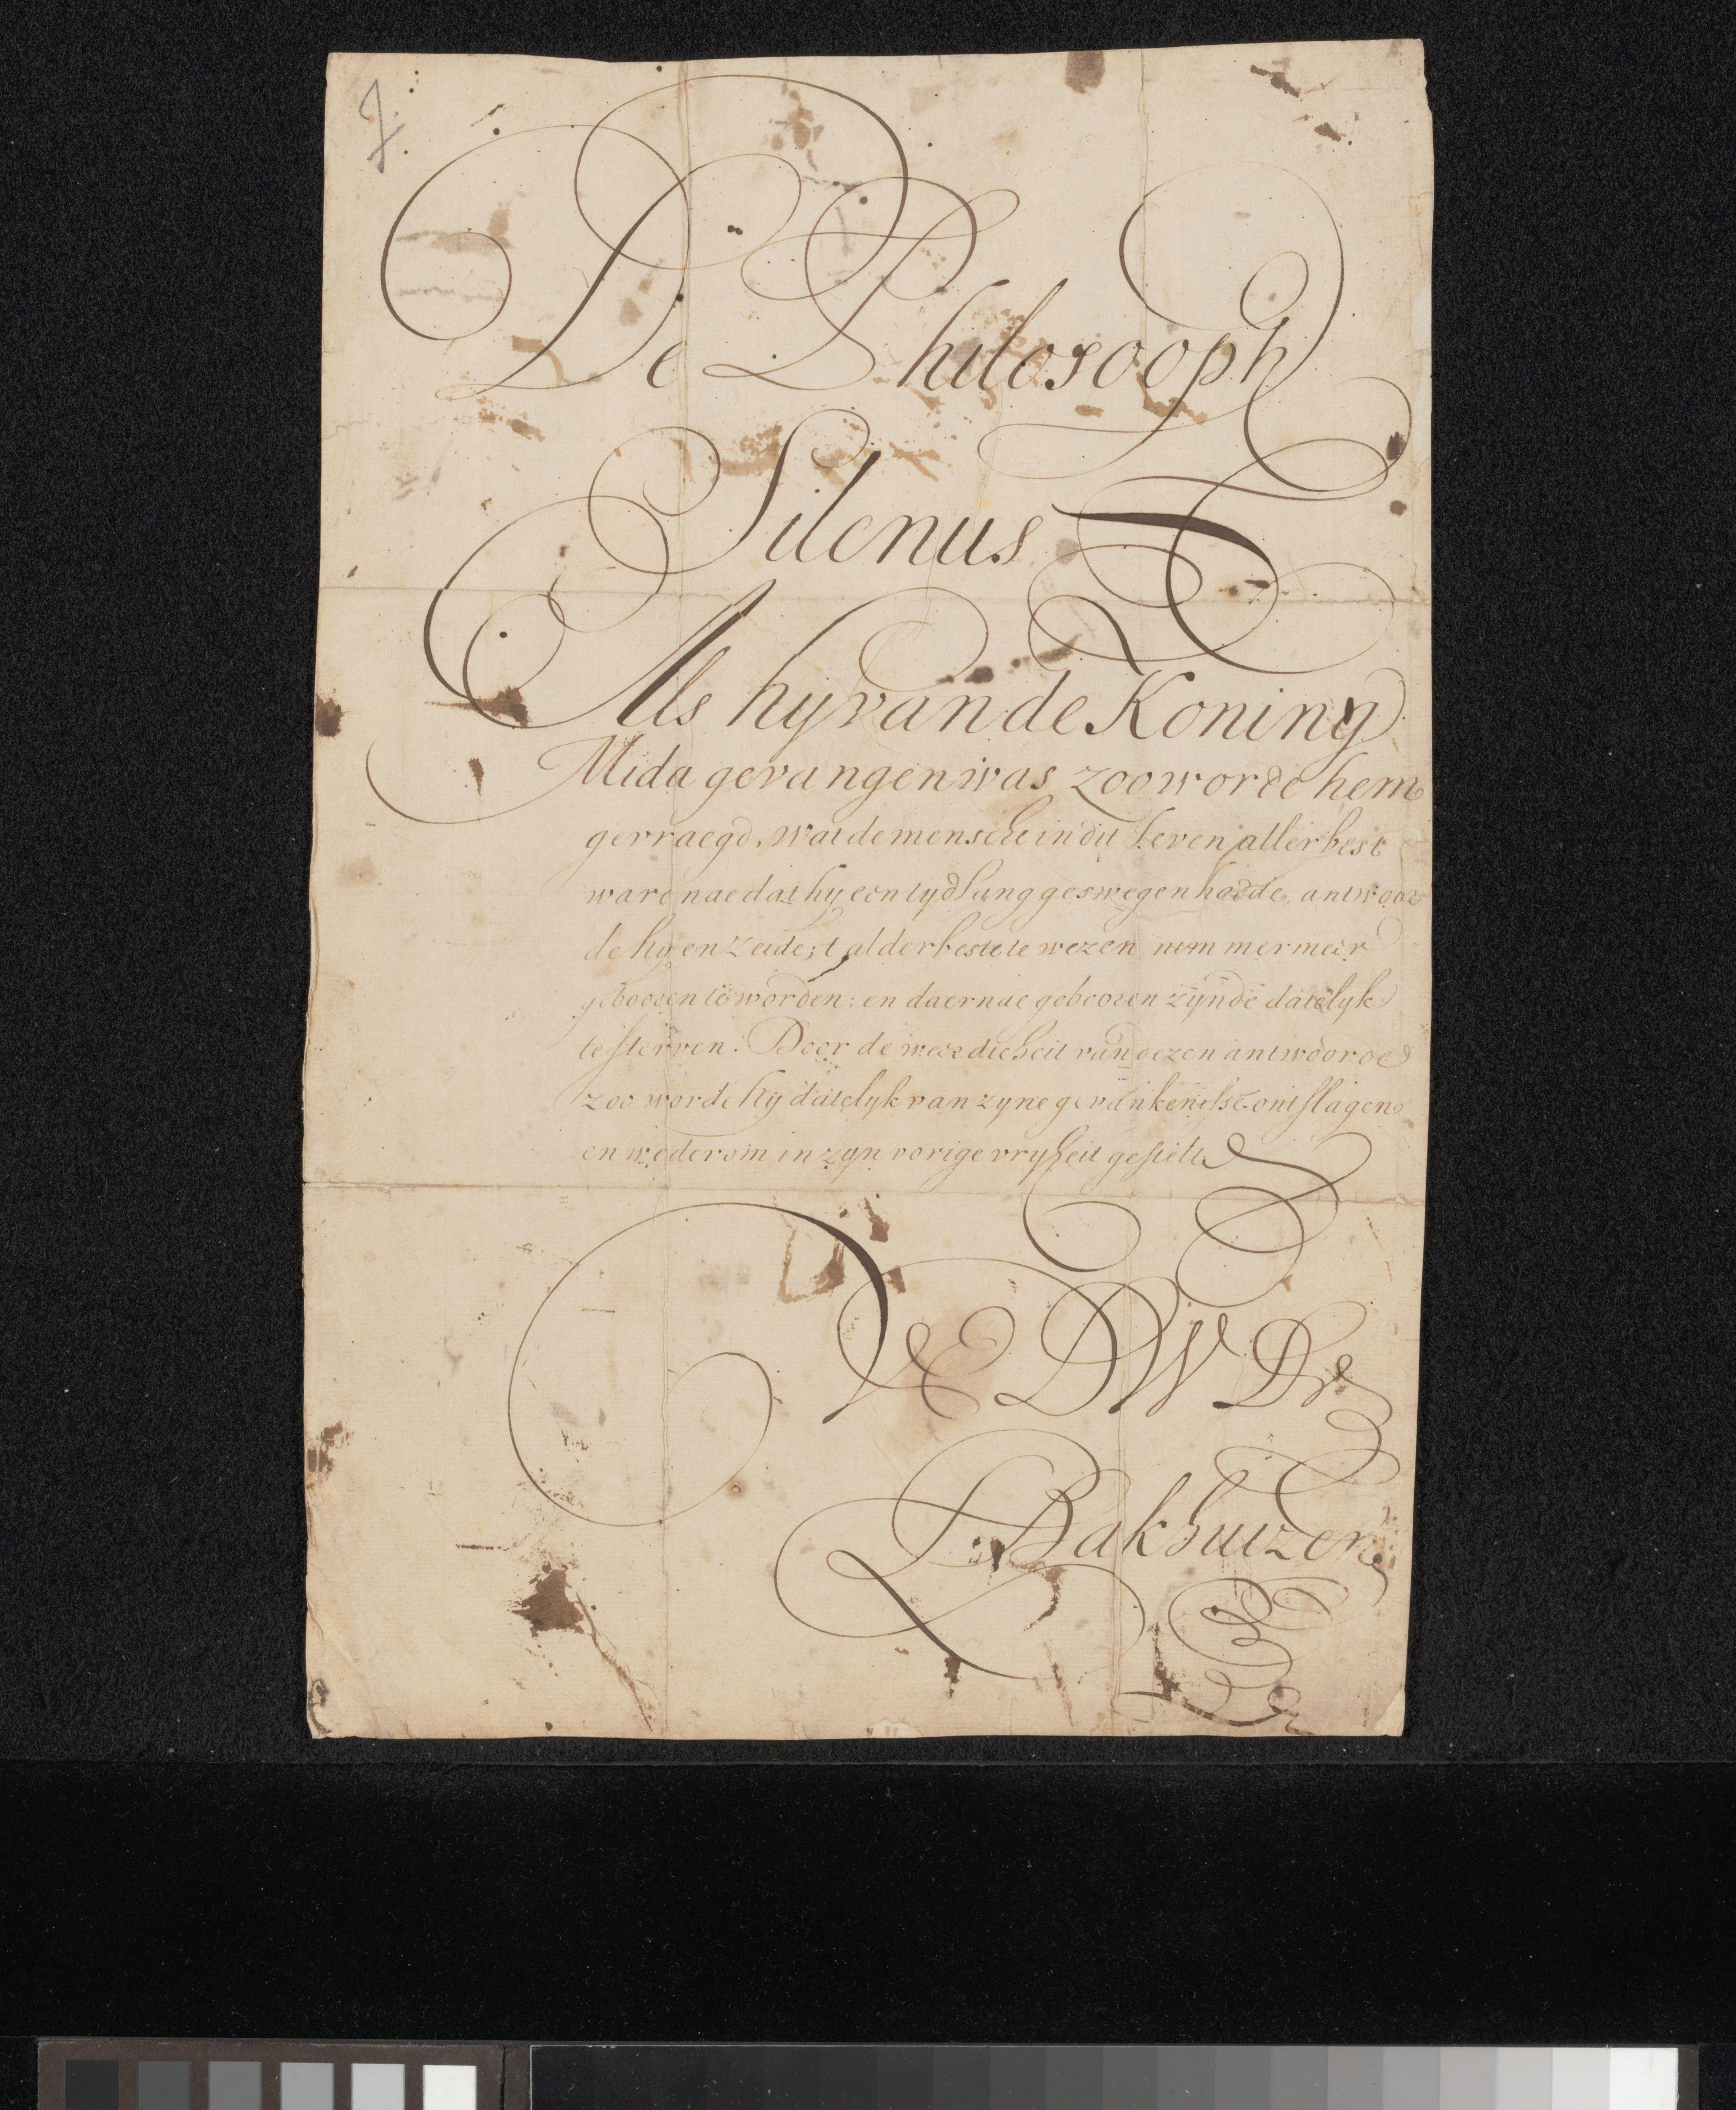 De Philosooph
Silenus
Als hy van de Koning
Mida gevangen was zoo worde hem
gevraegd, wat de mensche in dit leven aller best
ware nae dat hy een tyd lang geswegen hadde, antwoor
de hy en zeide; t alderbeste te wezen nimmermeer
gebooren te worden: en daer nae gebooren zynde datelyk
te sterven. Door de weerdicheit van dezen antwoorde
zoo worde hy datelyk van zyne gevankenisse ontslagen
en wederom in zyn vorige vryheit gestelt
UE DW Dr
L: Bakhuizen